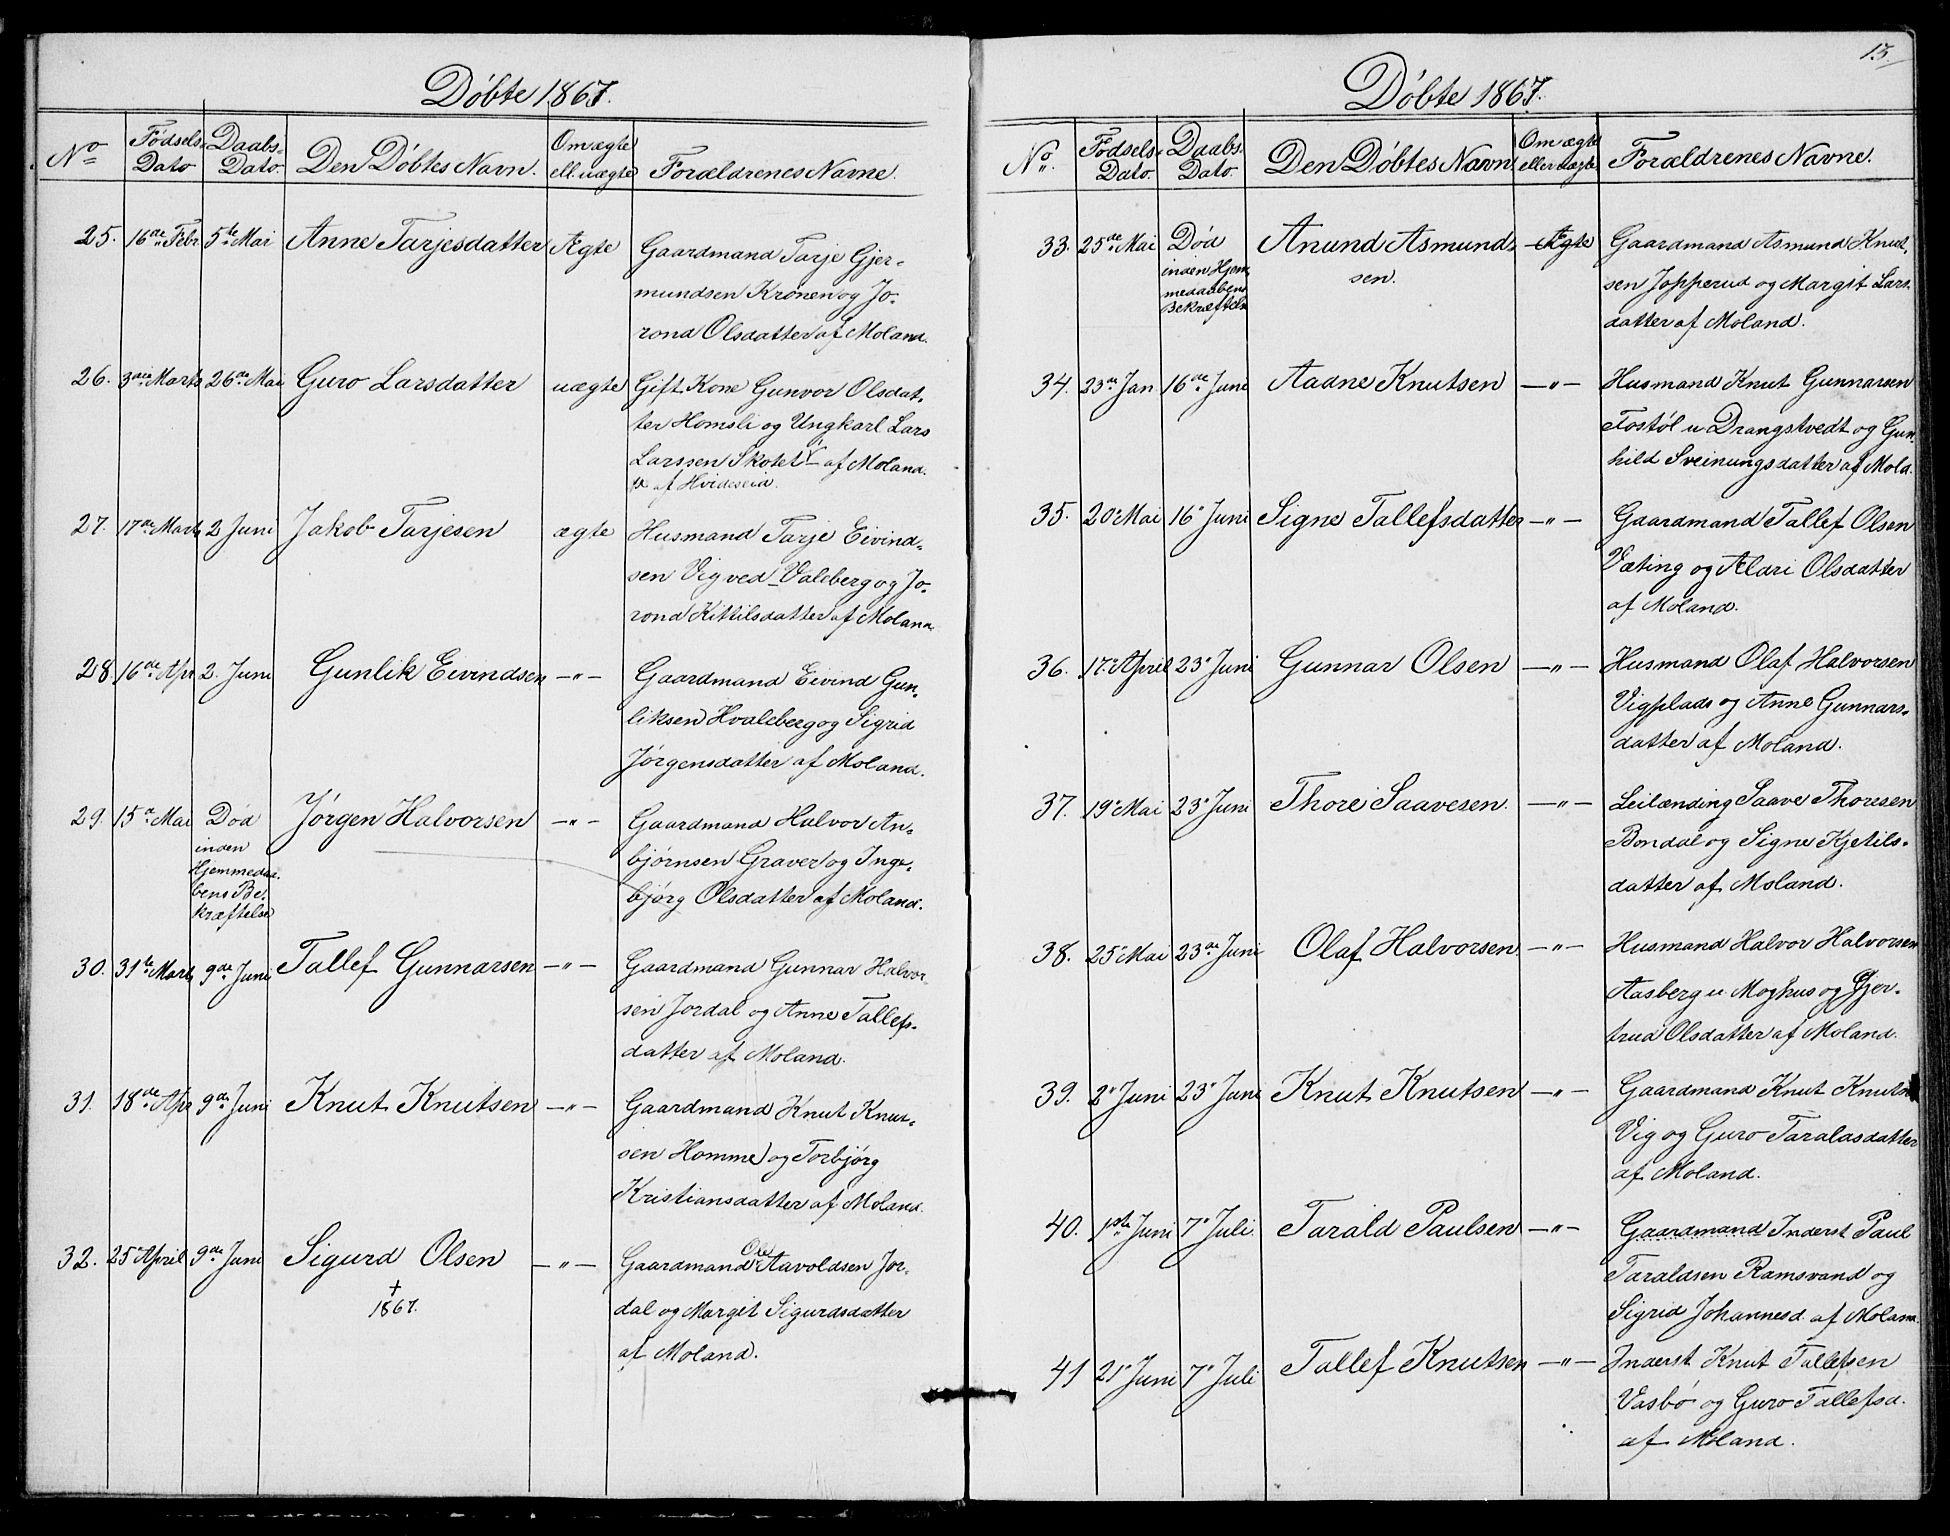 Døbte 1867.
No Fødsels-Dato Daabs-Dato. Den Døbtes Navn. Om ægte ell. uægte Forældrenes Navne.
25. 16de Febr 5te Mai Anne Tarjesdatter Ægte Gaardmand Tarje Gjer-
mundsen Kronen og Jo-
rond Olsdatter af Moland.
26. 3die Marts 26de Mai Guro Larsdatter uægte Gift Kone Gunvor Olsdat-
ter Homsli og Ungkarl Lars
Larssen Skotet af Moland.
af Hvideseid.
27. 17de Marts 2 Juni Jakob Tarjesen ægte Husmand Tarje Eivind-
sen Vig ved Valeberg og Jo-
rond Kittilsdatter af Moland
28. 16de Apr 2. Juni Gunlik Eivindsen -"- Gaardmand Eivind Gun-
liksen Hvaleberg og Sigrid
Jørgensdatter af Moland.
29. 15de Mai Død Jørgen Halvorsen -"- Gaardmand Halvor An-
inden
Hjemmedaa-
bens Be-
kræftelse
bjørnsen Graver og Inge-
bjørg Olsdatter af Moland.
30. 31te Marts 9de Juni Tallef Gunnarsen -"- Gaardmand Gunnar Halvor-
sen Jordal og Anne Tallefs-
datter af Moland.
31. 18de Apr 9de Juni Knut Knutsen -"- Gaardmand Knut Knut-
sen Homme og Torbjørg
Kristiansdatter af Moland.
32. 25 April 9de Juni Sigurd Olsen -"- Gaardmand Ole Aavoldsen Jor-
† 1867.
dal og Margit Sigurdsdatter
af Moland.
13.
Døbte 1867.
No. Fødsels-Dato. Daabs-Dato. Den Døbtes Navn Om ægte eller uægte Forældrenes Navne.
33. 25de Mai Død Anund Asmund- Ægte Gaardmand Asmund Knut-
inden Hjem-
medaabens
Bekræftelse
sen.
sen Jopperud og Margit Lars-
datter af Moland.
34. 23de Jan 16de Juni Aadne Knutsen -"- Husmand Knut Gunnarsen
Fostöl u Drangstvedt og Gun-
hild Sveinungsdatter af Mold.
35. 20 Mai 16 Juni Signe Tallefsdatter -"- Gaardmand Tallef Olsen
Væting og Alari Olsdatter
af Moland.
36. 17. April 23 Juni Gunnar Olsen -"- Husmand Olaf Halvorsen
Vigplads og Anne Gunnars-
datter af Moland.
37. 19 Mai 23 Juni Thore Saavesen. -"- Leilænding Saave Thoresen
Bondal og Signe Kjetils-
datter af Moland.
38. 25 Mai 23de Juni Olaf Halvorsen. -"- Husmand Halvor Halvorsen
Aasberg u. Moghus og Gjer-
trud Olsdatter af Moland.
39. 2 Juni 23 Juni Knut Knutsen -"- Gaardmand Knut Knutsen
Vig og Guro Taraldsdatter
af Moland.
40. 1ste Juni 7 Juli. Tarald Paulsen -"- Gaardmand Inderst Paul
Taraldsen Ramsvand og
Sigrid Johannesd. af Moland.
41 21 Juni 7 Juli Tallef Knutsen -"- Inderst Knut Tallefsen
Vasbø og Guro Tallefsd.
af Moland.